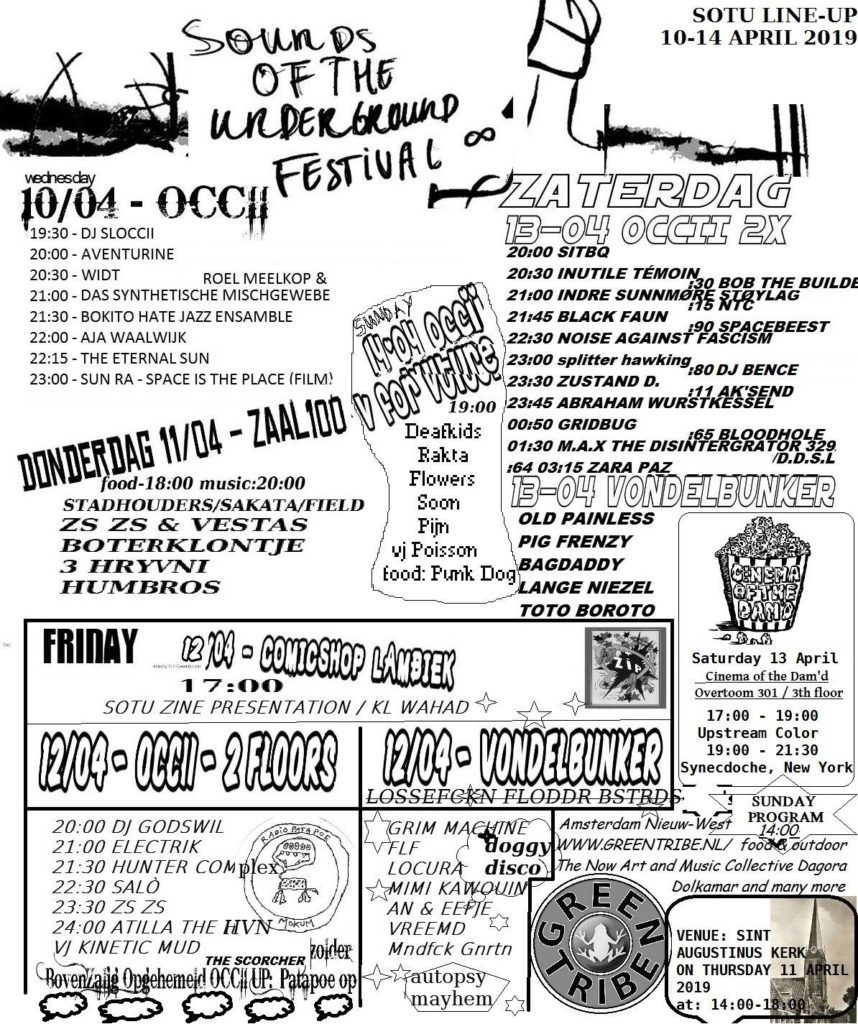 SOTU LINE-UP
10-14 APRIL 2019
SOUNDS
OF THE
UNDERGROUND
FESTIVAL ∞
wednesday
10/04 - OCCII
19:30 - DJ SLOCCII
20:00 - AVENTURINE
20:30 - WIDT
ROEL MEELKOP &
21:00 - DAS SYNTHETISCHE MISCHGEWEBE
21:30 - BOKITO HATE JAZZ ENSAMBLE
22:00 - AJA WAALWIJK
22:15 - THE ETERNAL SUN
23:00 - SUN RA - SPACE IS THE PLACE (FILM)
ZATERDAG
13-04 OCCII 2X
20:00 SITBQ
20:30 INUTILE TÉMOIN
:30 BOB THE BUILDE
21:00 INDRE SUNNMØRE STØYLAG
:15 NTC
21:45 BLACK FAUN
:90 SPACEBEEST
22:30 NOISE AGAINST FASCISM
23:00 splitter hawking
:80 DJ BENCE
23:30 ZUSTAND D.
:11 AK'SEND
23:45 ABRAHAM WURSTKESSEL
00:50 GRIDBUG
:65 BLOODHOLE
01:30 M.A.X THE DISINTERGRATOR 329
/D.D.S.L
:64 03:15 ZARA PAZ
SUNDAY
14:04 OCCII
V FOR VUTURE
19:00
Deafkids
Rakta
Flowers
Soon
Pijn
vj Poisson
food: Punk Dog
DONDERDAG 11/04 - ZAAL100
food-18:00 music:20:00
STADHOUDERS/SAKATA/FIELD
ZS ZS & VESTAS
BOTERKLONTJE
3 HRYVNI
HUMBROS
13-04 VONDELBUNKER
OLD PAINLESS
PIG FRENZY
BAGDADDY
LANGE NIEZEL
TOTO BOROTO
CINEMA
OF THE
DAM'D
Saturday 13 April
Cinema of the Dam'd
Overtoom 301 / 3th floor
17:00 - 19:00
Upstream Color
19:00 - 21:30
Synecdoche, New York
FRIDAY
12/04 - COMICSHOP LAMBIEK
17:00
SOTU ZINE PRESENTATION / KL WAHAD
12/04 - OCCII - 2 FLOORS
20:00 DJ GODSWIL
21:00 ELECTRIK
21:30 HUNTER Complex
22:30 SALÒ
23:30 ZS ZS
24:00 ATILLA THE HVN
VJ KINETIC MUD
RADIO PATAPOE
MOKUM
THE SCORCHER
zolder
BovenZalig Opgehemeld OCCII UP: Patapoe op
12/04 - VONDELBUNKER
LOSSEFCKN FLODDR BSTRDS
GRIM MACHINE
FLF
LOCURA
MIMI KAWOUIN
AN & EEFJE
VREEMD
Mndfck Gnrtn
doggy
disco
autopsy
mayhem
SUNDAY
PROGRAM
14:00
Amsterdam Nieuw-West
WWW.GREENTRIBE.NL/ food & outdoor
The Now Art and Music Collective Dagora
Dolkamar and many more
GREEN
TRIBE
VENUE: SINT
AUGUSTINUS KERK
ON THURSDAY 11 APRIL
2019
at: 14:00-18:00